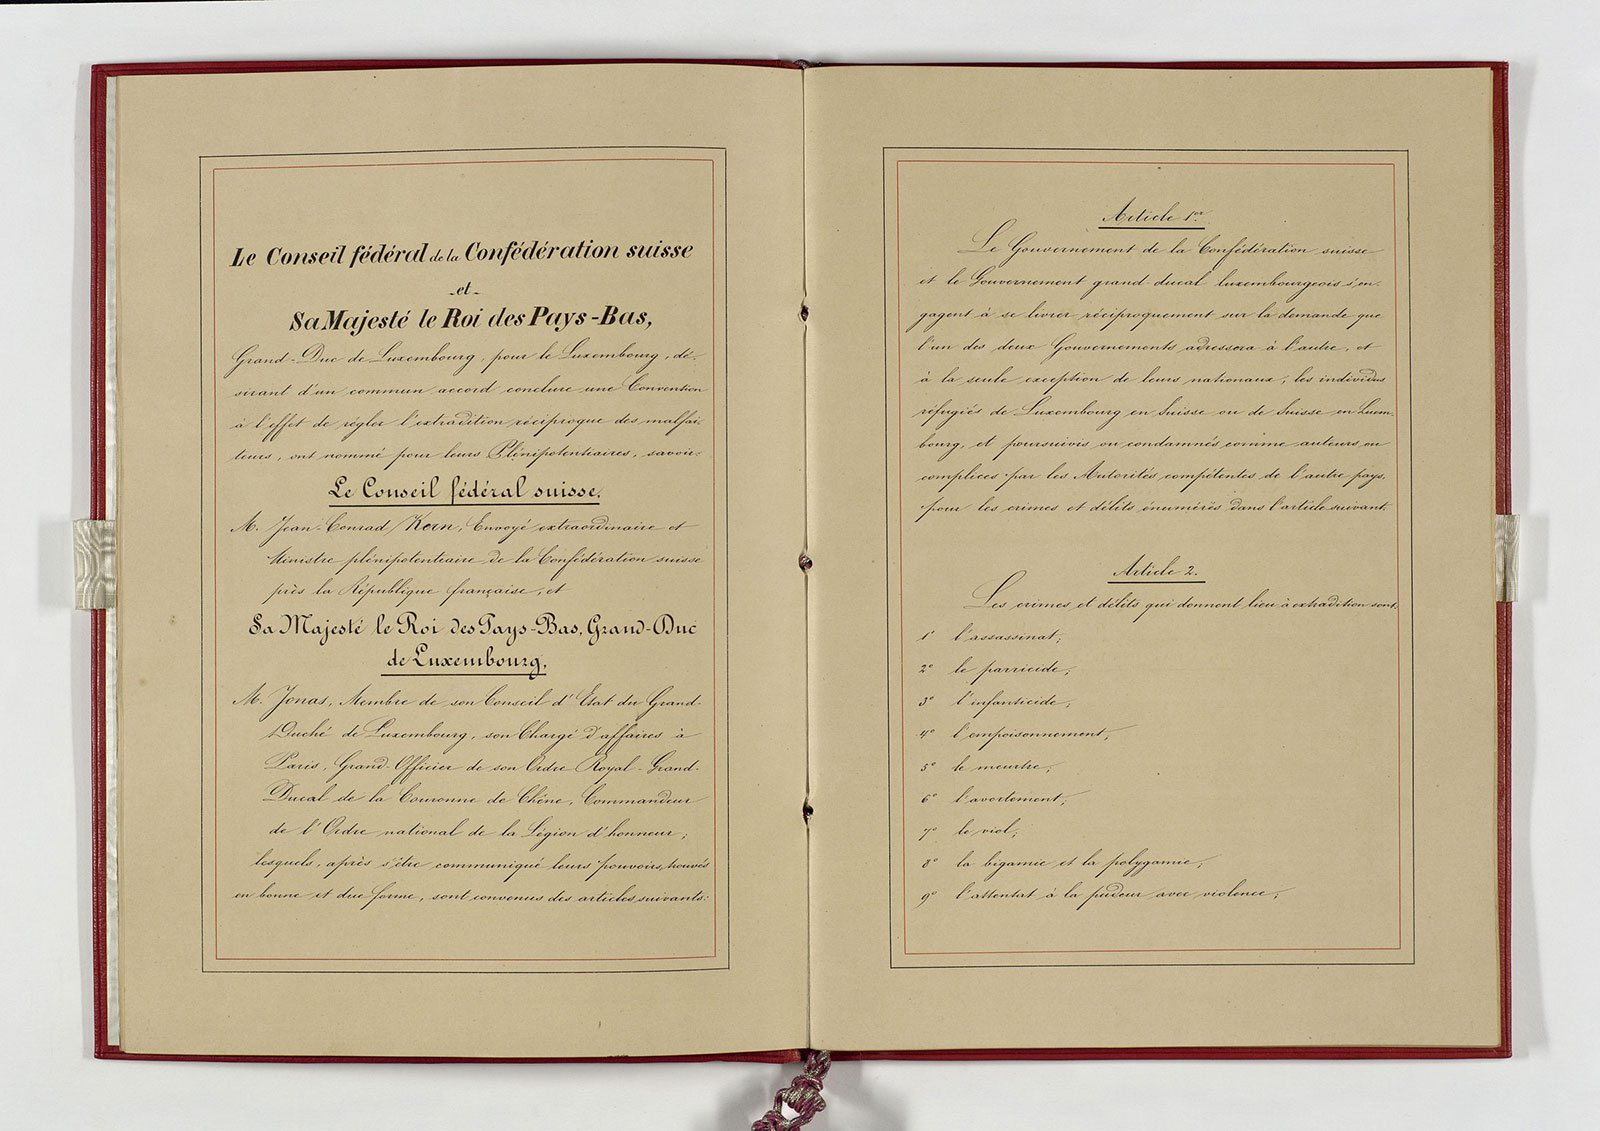 Le Conseil fédéral de la Confédération suisse
-et-
Sa Majesté le Roi des Pays-Bas,
Grand-Duc de Luxembourg, pour le Luxembourg, dé-
sirant d'un commun accord conclure une Convention
à l'effet de régler l'extradition réciproque des malfai-
teurs, ont nommé pour leurs Plénipotentiaires, savoir:
Le Conseil fédéral suisse.
M. Jean-Conrad Kern, Envoyé extraordinaire et
Ministre plénipotentiaire de la Confédération suisse
près la République française, et
Sa Majesté le Roi des Pays-Bas, Grand-Duc
de Luxembourg.
M. Jonas, Membre de son Conseil d'Etat du Grand-
Duché de Luxembourg, son Chargé d'affaires à
Paris, Grand-Officier de son Ordre Royal-Grand-
Ducal de la Couronne de Chêne, Commandeur
de l'Ordre national de la Légion d'honneur,
lesquels, après s'être communiqué leurs pouvoirs, trouvés
en bonne et due forme, sont convenus des articles suivants:
Article 1er.
Le Gouvernement de la Confédération suisse
et le Gouvernement grand-ducal luxembourgeois s'en-
gagent à se livrer réciproquement sur la demande que
l'un des deux Gouvernements adressera à l'autre, et
à la seule exception de leurs nationaux, les individus
réfugiés de Luxembourg en Suisse ou de Suisse en Luxem-
bourg, et poursuivis ou condamnés comme auteurs ou
complices par les Autorités compétentes de l'autre pays,
pour les crimes et délits énumérés dans l'article suivant.
Article 2.
Les crimes et délits qui donnent lieu à extradition sont:
1° l'assassinat;
2° le parricide;
3° l'infanticide;
4° l'empoisonnement;
5° le meurtre;
6° l'avortement;
7° le viol;
8° la bigamie et la polygamie;
9° l'attentat à la pudeur avec violence;